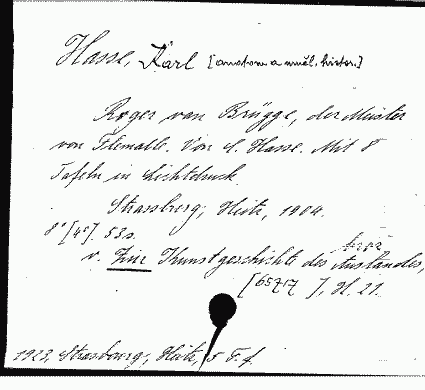 Hasse, Karl [anatom a uměl. histor.]
Roger van Brügge, der Meister
von Flemalle. Von C. Hasse. Mit 8
Tafeln in Lichtdruck.
Strassburg, Heitz, 1904.
8° [4°]. 53 s.
v. Zur Kunstgeschichte des Auslandes,
[65717 ], H. 21.
1923, Strassburg, Heitz, 5 F. f.